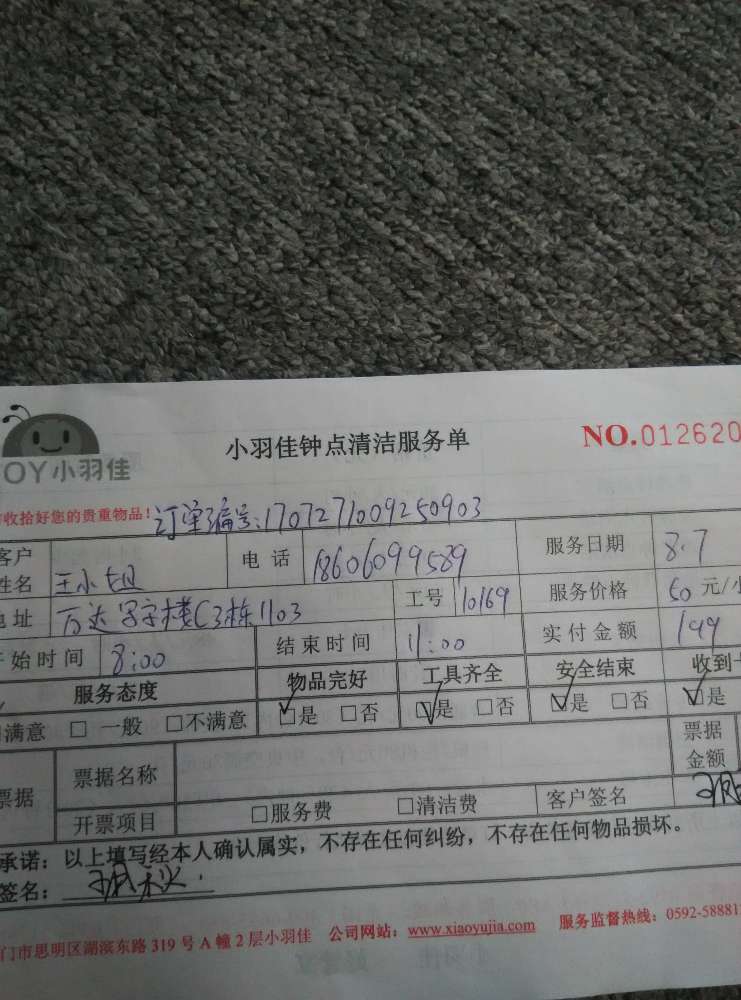 小羽佳钟点清洁服务单 NO.012620
OY小羽佳
收拾好您的贵重物品! 订单编号:1707271009250903
客户姓名 王小姐 电话 18606099589 服务日期 8.7
地址 万达写字楼C3栋1103 工号 10169 服务价格 50元/小
开始时间 8:00 结束时间 11:00 实付金额 149
服务态度 物品完好 工具齐全 安全结束 收到
满意 □ 一般 □不满意 □是 □否 □是 □否 □是 □否 □是
票据 票据名称 票据金额
开票项目 □服务费 □清洁费 客户签名
承诺: 以上填写经本人确认属实,不存在任何纠纷,不存在任何物品损坏。
签名:
门市思明区湖滨东路 319 号 A 幢 2 层小羽佳 公司网站: www.xiaoyujia.com 服务监督热线: 0592-58881